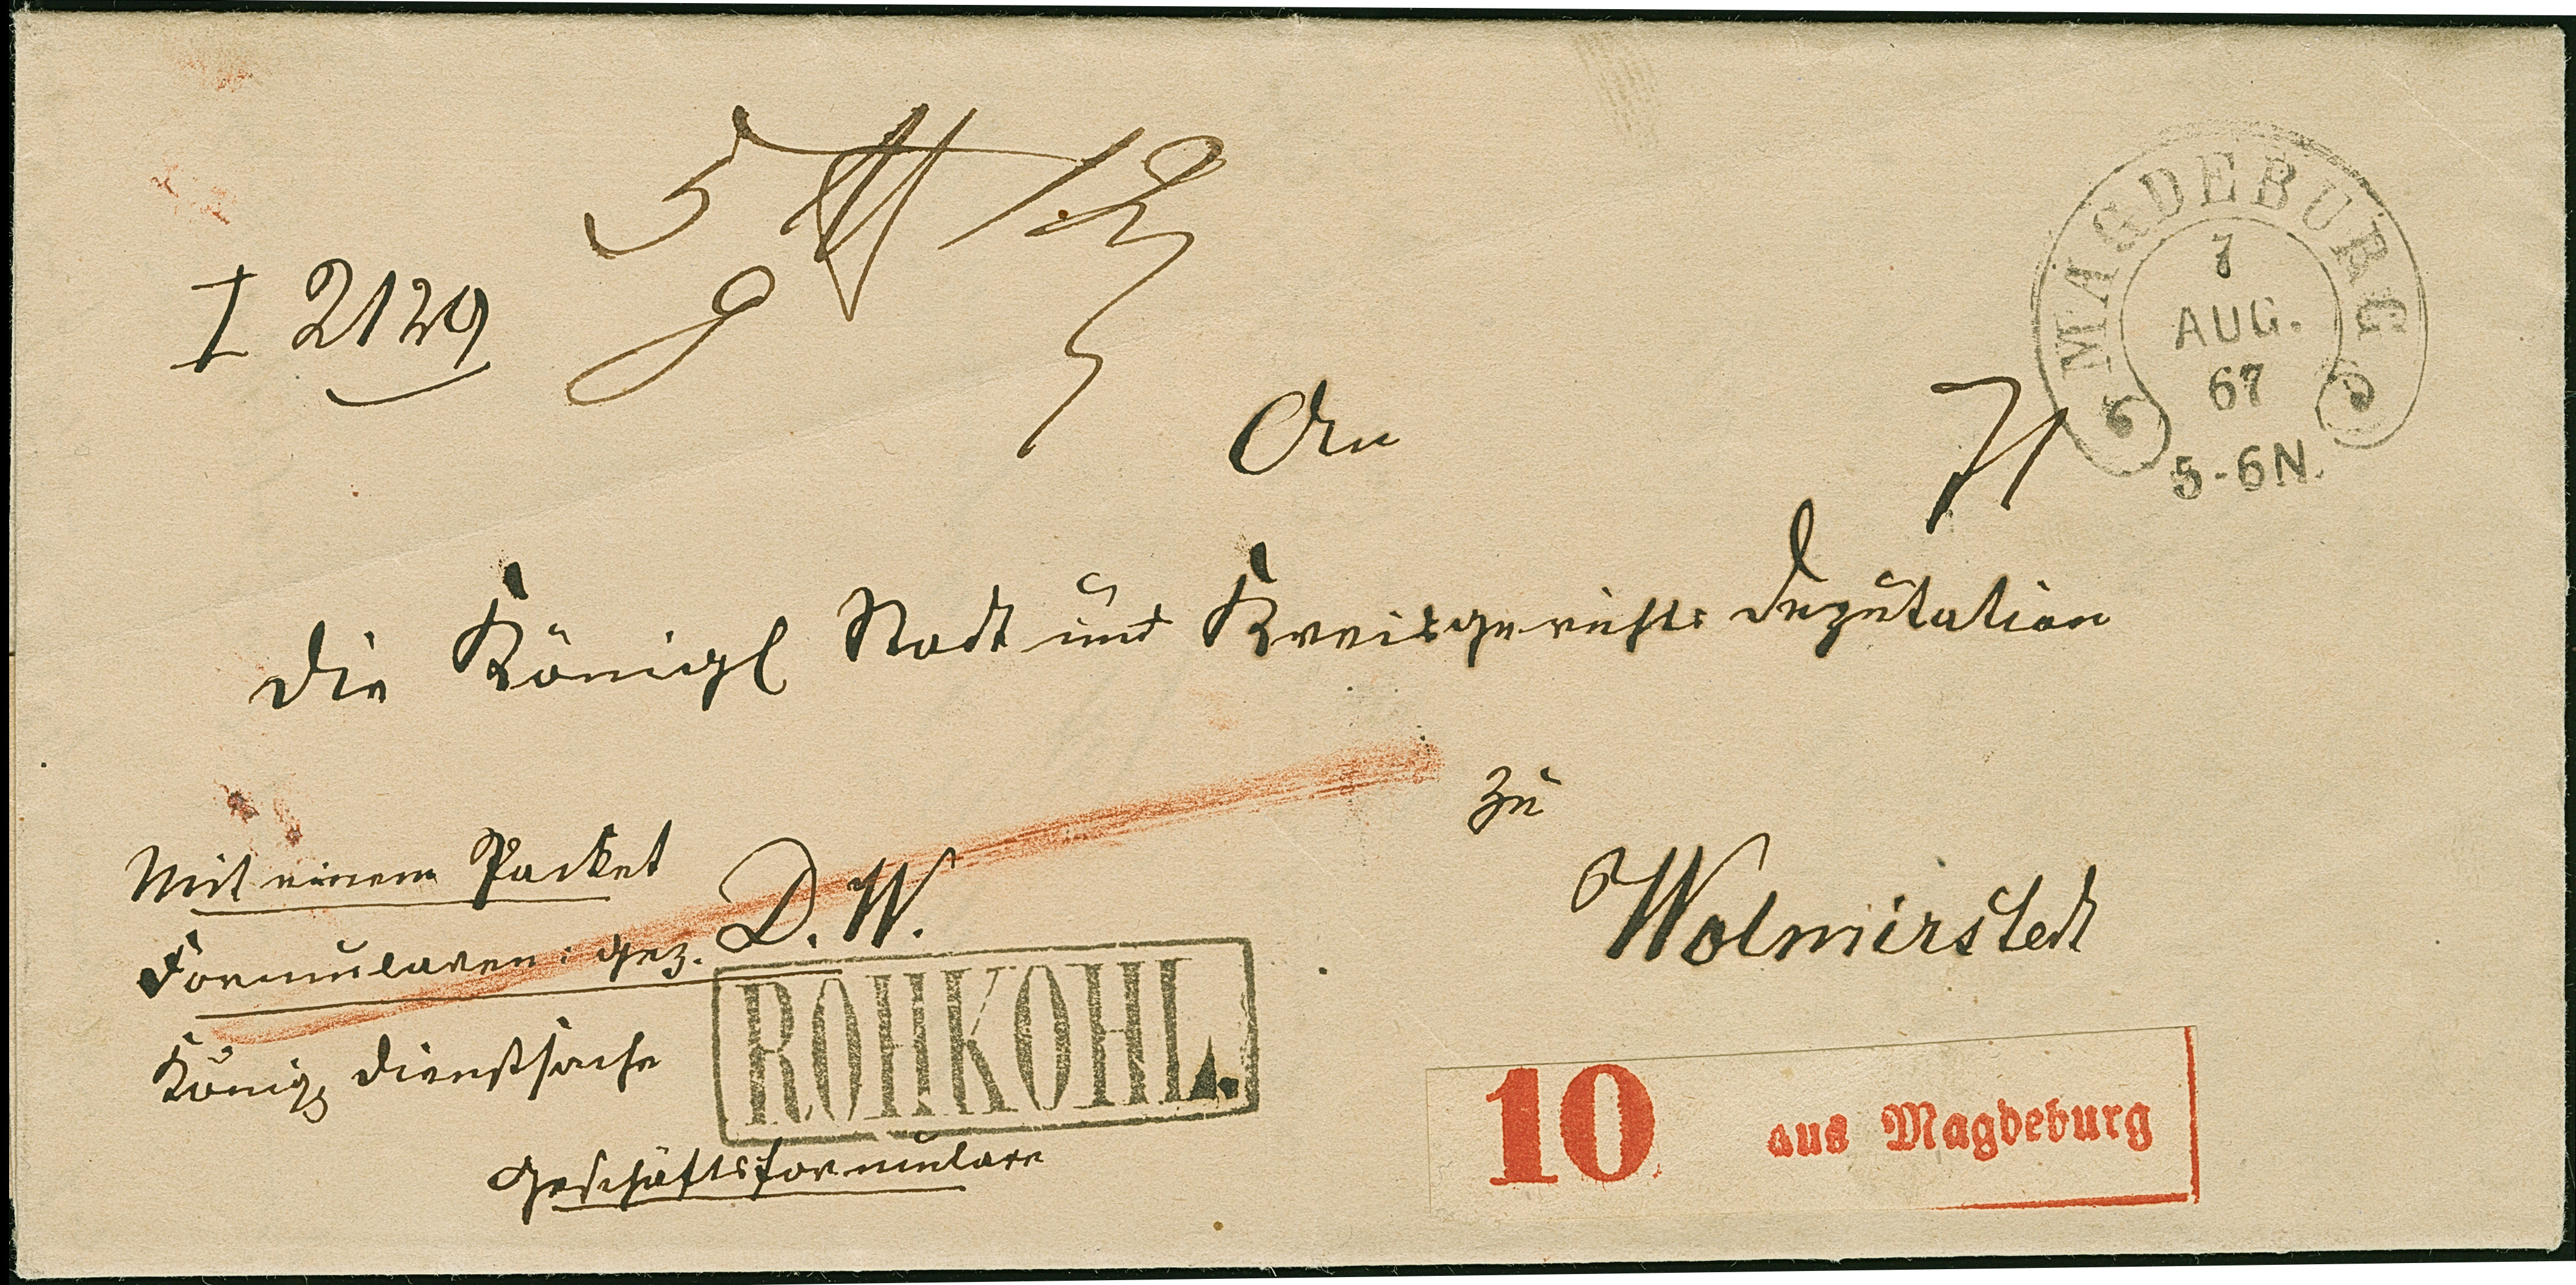 MAGDEBURG
7
AUG.
67
5-6N.
5
I 2129
An
die Königl Stadt und Kreisgerichts Deputation
zu
Wolmirstedt
Mit einem Packet
Formularen: gez. D. W.
Königl Dienstsache
ROHKOHL.
Geschäftsformulare
10 aus Magdeburg